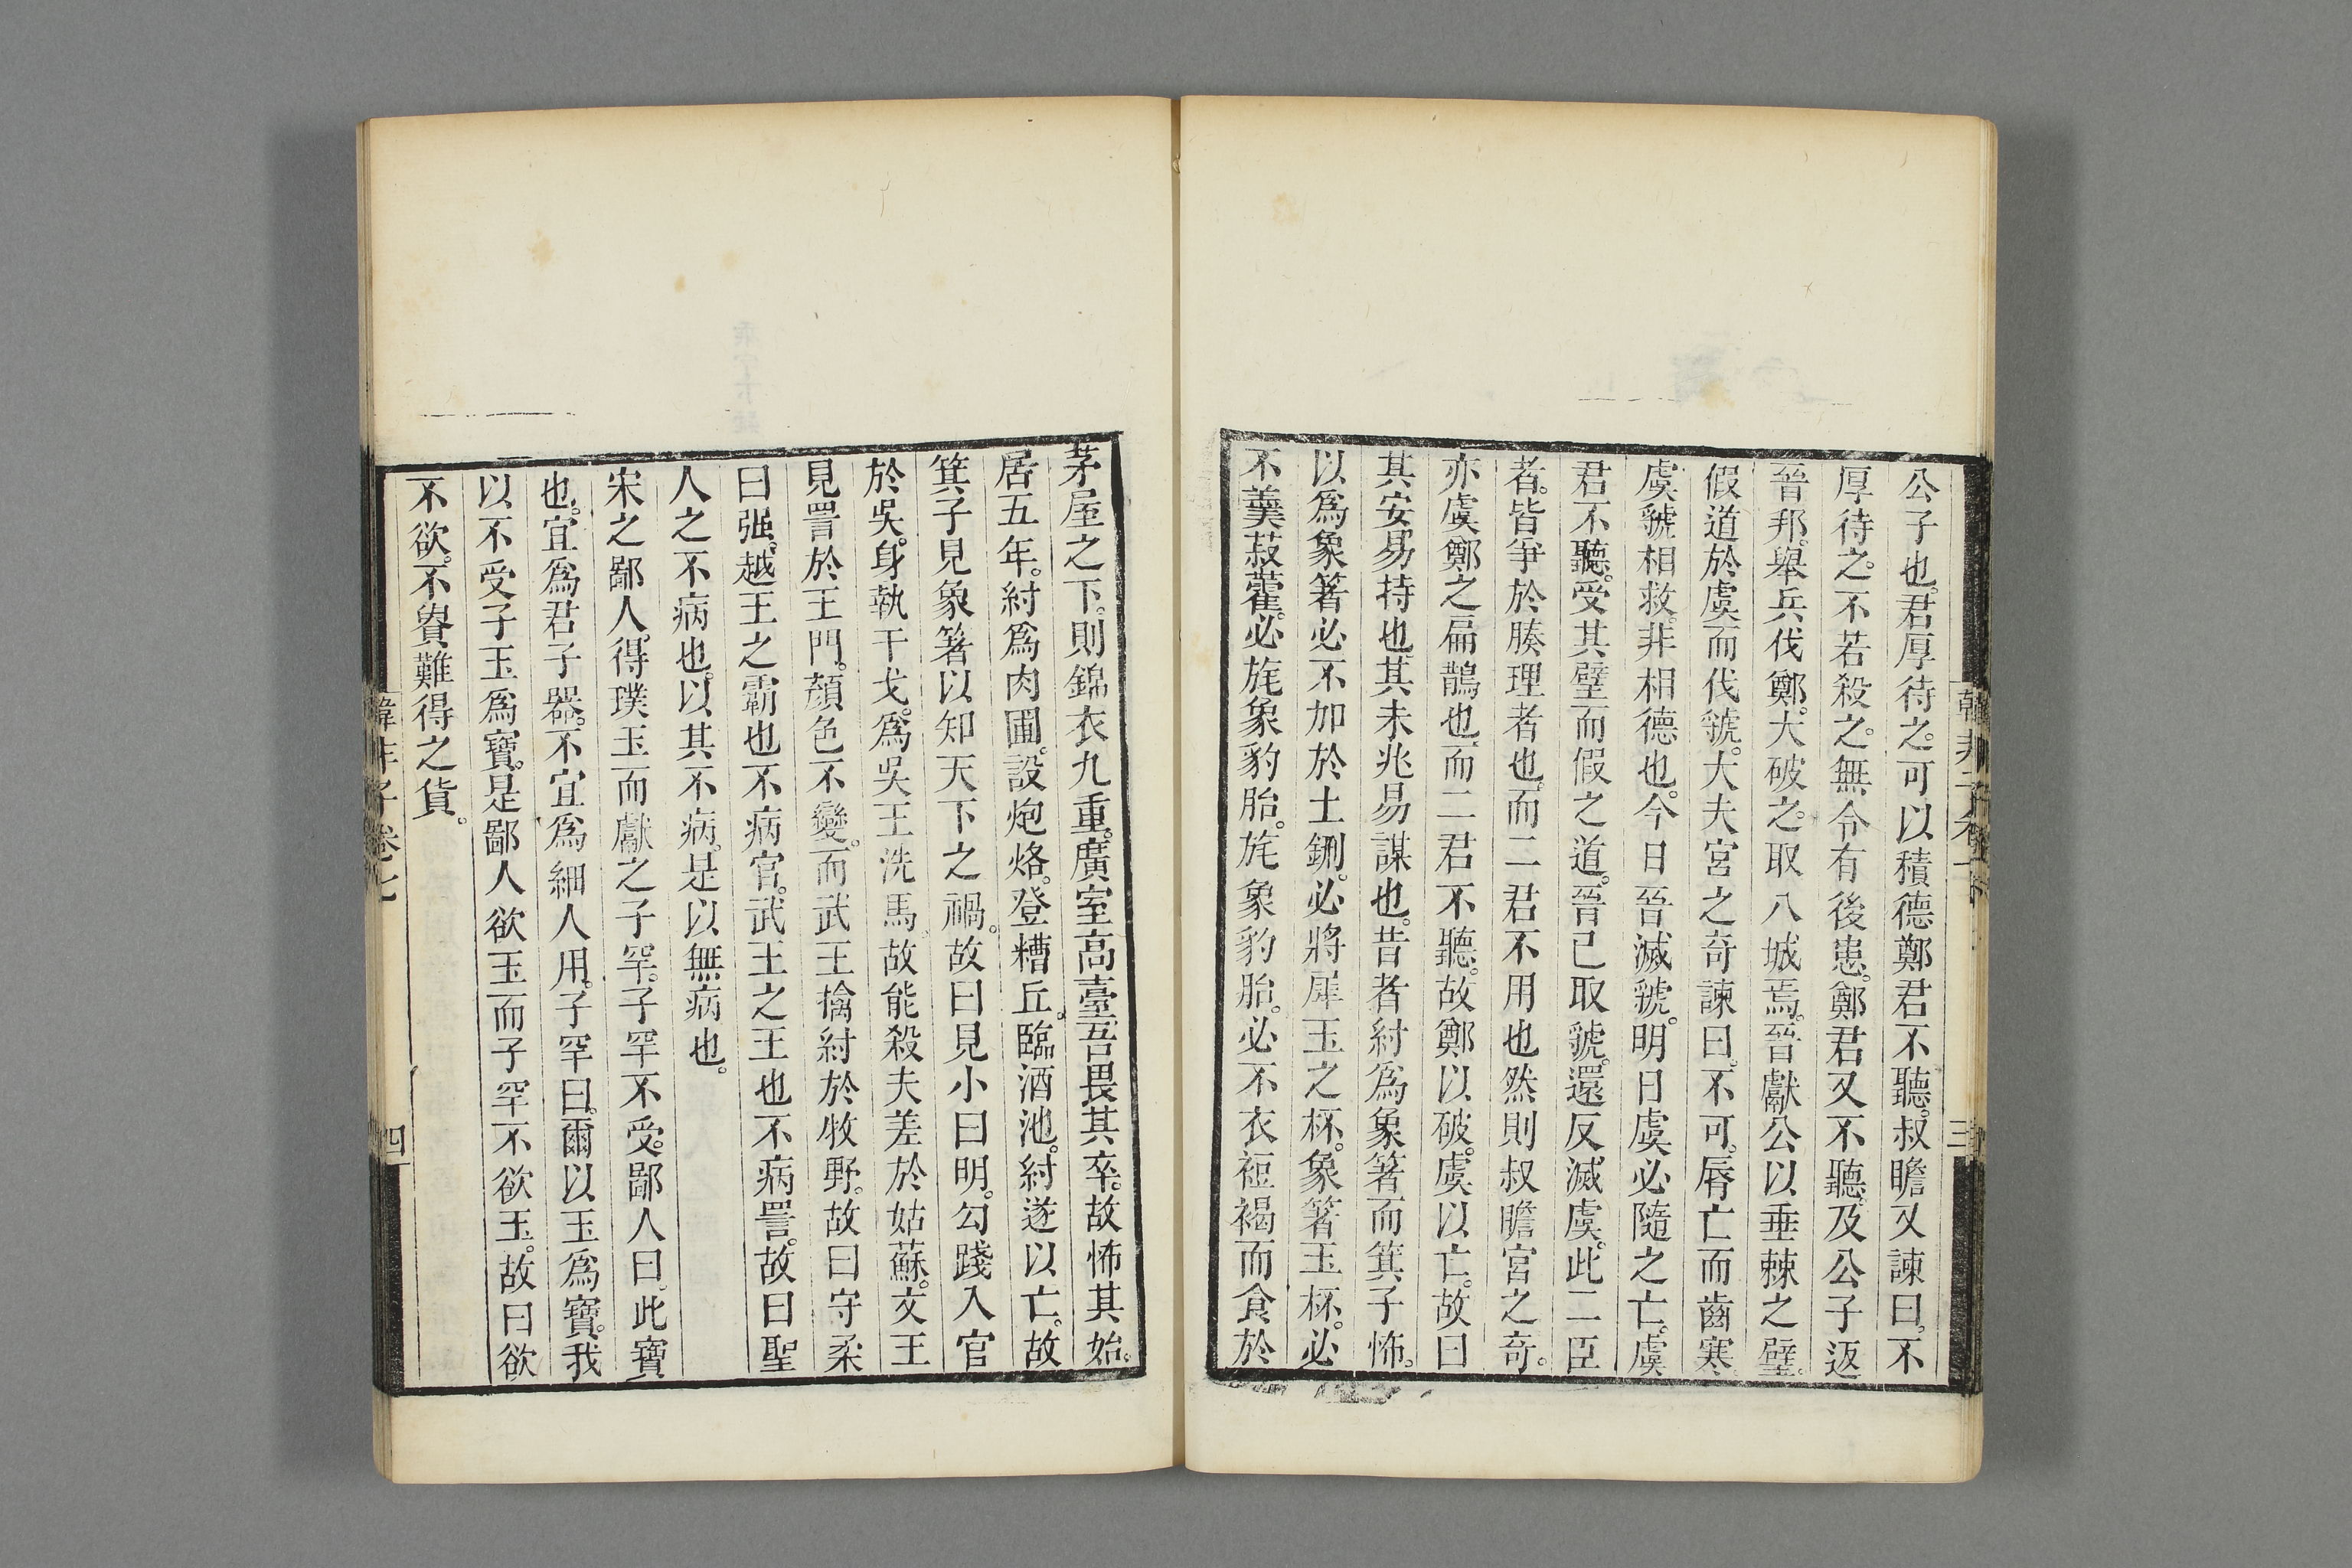 公子也。君厚待之。可以積德鄭君不聽。叔瞻又諫曰。不
厚待之。不若殺之。無令有後患。鄭君又不聽。及公子返
晉邦。舉兵伐鄭。大破之。取八城焉。晉獻公以垂棘之璧。
假道於虞而伐虢。大夫宮之奇諫曰。不可。脣亡而齒寒
虞虢相救。非相德也。今日晉滅虢。明日虞必隨之亡。虞
君不聽。受其璧而假之道。晉已取虢。還反滅虞。此二臣
者。皆爭於腠理者也。而二君不用也然則叔瞻宮之奇。
亦虞鄭之扁鵲也。而二君不聽。故鄭以破。虞以亡。故曰
其安易持也其未兆易謀也。昔者紂爲象箸而箕子怖。
以爲象箸必不加於土鉶。必將犀玉之杯。象箸玉杯。必
不羹菽藿。必旄象豹胎。旄象豹胎。必不衣裋褐而食於
茅屋之下。則錦衣九重。廣室高臺。吾畏其卒。故怖其始。
居五年。紂爲肉圃。設炮烙。登糟丘。臨酒池。紂遂以亡。故
箕子見象箸以知天下之禍。故曰見小曰明。勾踐入官
於吳。身執干戈。爲吳王洗馬。故能殺夫差於姑蘇。文王
見詈於王門。顏色不變。而武王擒紂於牧野。故曰守柔
曰强。越王之霸也不病官。武王之王也不病詈。故曰聖
人之不病也。以其不病。是以無病也。
宋之鄙人。得璞玉而獻之子罕。子罕不受。鄙人曰。此寶
也。宜爲君子器。不宜爲細人用。子罕曰。爾以玉爲寶。我
以不受子玉爲寶。是鄙人欲玉而子罕不欲玉。故曰欲
不欲。不貴難得之貨。
韓非子卷七
四
三